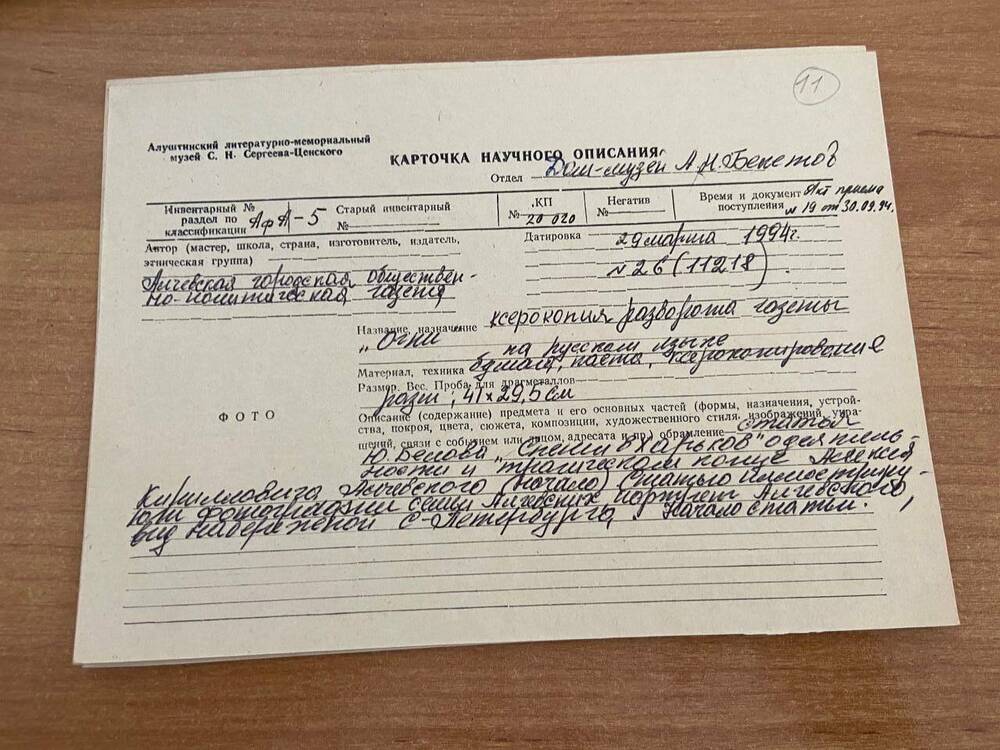 11
Алуштинский литературно-мемориальный
музей С. Н. Сергеева-Ценского
КАРТОЧКА НАУЧНОГО ОПИСАНИЯ
Отдел Дом-музей А.Н.Бекетов
Инвентарный № раздел по классификации АфА-5
Старый инвентарный №
КП № 20 020
Негатив №
Время и документ поступления Акт приема
№ 19 от 30.09.94.
Автор (мастер, школа, страна, изготовитель, издатель,
этническая группа)
Алчевская городская обществен-
но-политическая газета
Датировка 29 марта 1994г.
№ 26 (11218)
Название, назначение ксерокопия разворота газеты
„Огни" на русском языке
Материал, техника бумага, паста, ксерокопирование
Размер. Вес. Проба для драгметаллов
разм; 41х29,5 см
ФОТО
Описание (содержание) предмета и его основных частей (формы, назначения, устрой-
ства, покроя, цвета, сюжета, композиции, художественного стиля, изображений, укра-
шений, связи с событием или лицом, адресата и пр.) обрамление Статья
Ю.Белова „Спешил в Харьков" о деятель-
ности и трагическом конце Алексея
Кирилловича Алчевского (начало) Статью иллюстриру-
ют фотографии семьи Алчевских портрет Алчевского,
вид набережной С-Петербурга. Начало статьи.